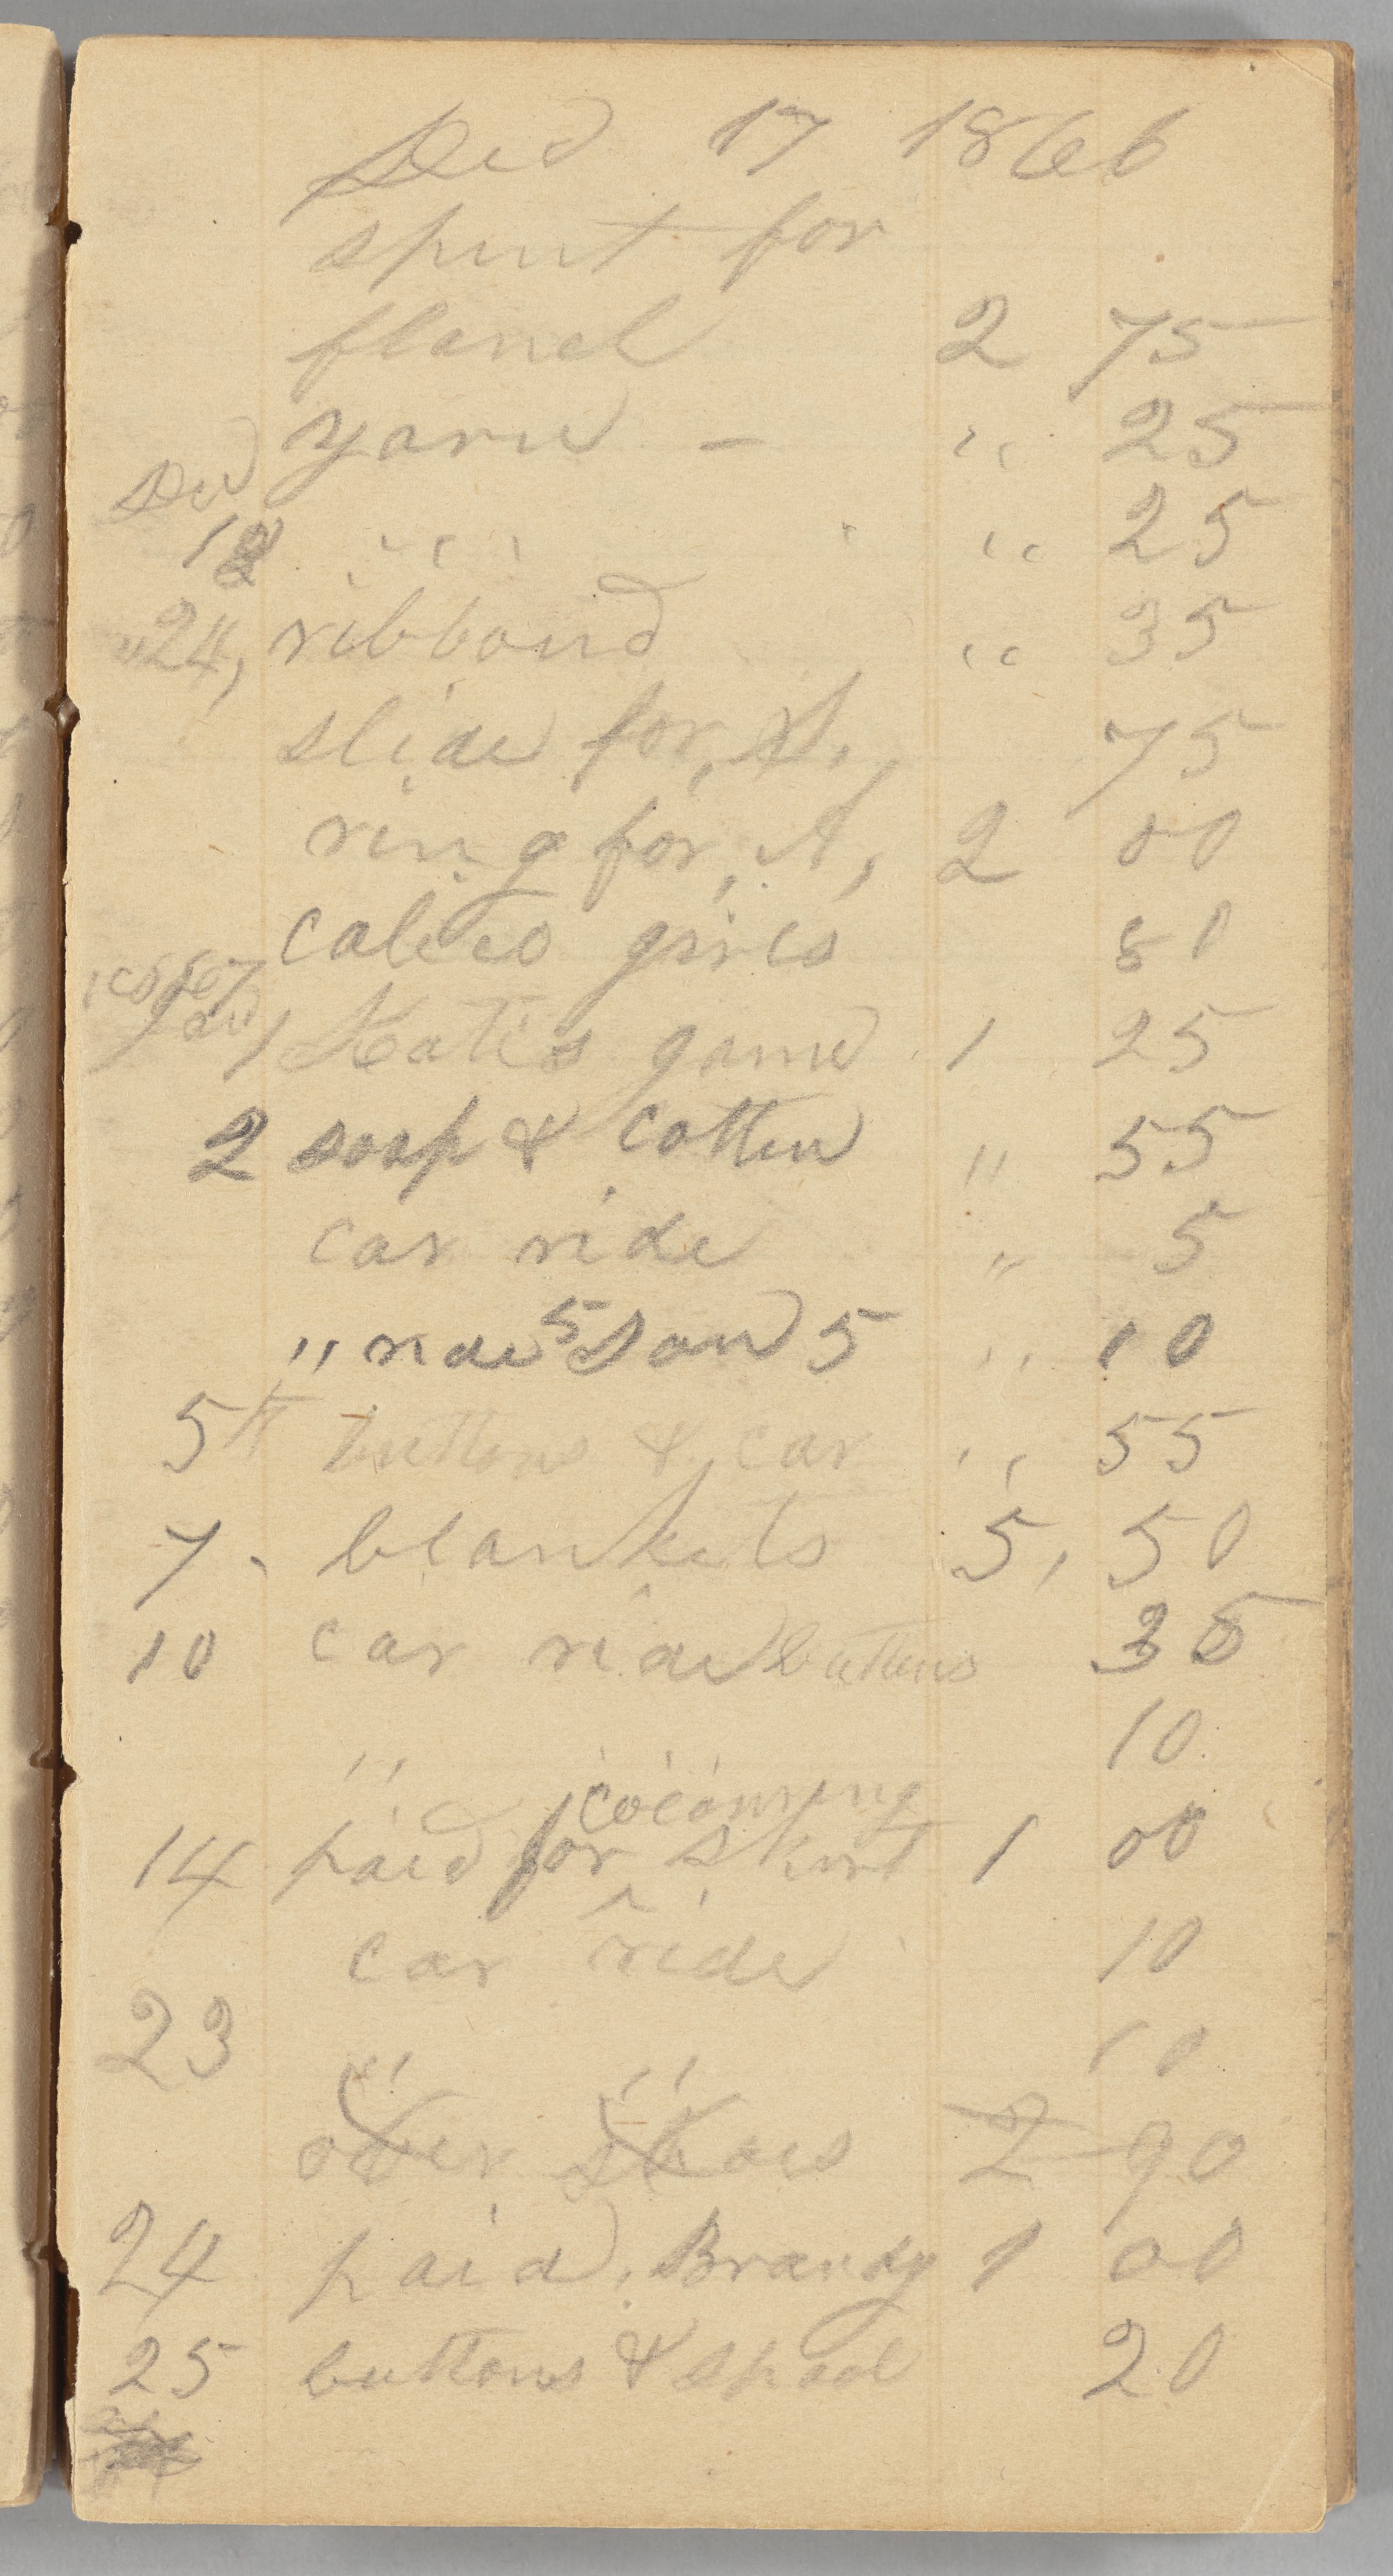 Dec 17 1866
spent for
flanel 2 75
yarn — " 25
Dec
18 " " " 25
" 24, ribbond " 35
slide for, S, 75
ring for, A, 2 00
calico girls 81
1867
Jan 1 Kates game 1 25
2 soap & cotten " 55
car ride " 5
" ride 5 Jan 5 " 10
5th buttons & car " 55
7 blankets 5, 50
10 car ride buttens 35
" " 10
coloaring
14 paid for skirt 1 00
car ride 10
23 " " 10
over shoes 2 90
24 paid, Brandy 1 00
25 buttons & spool 20